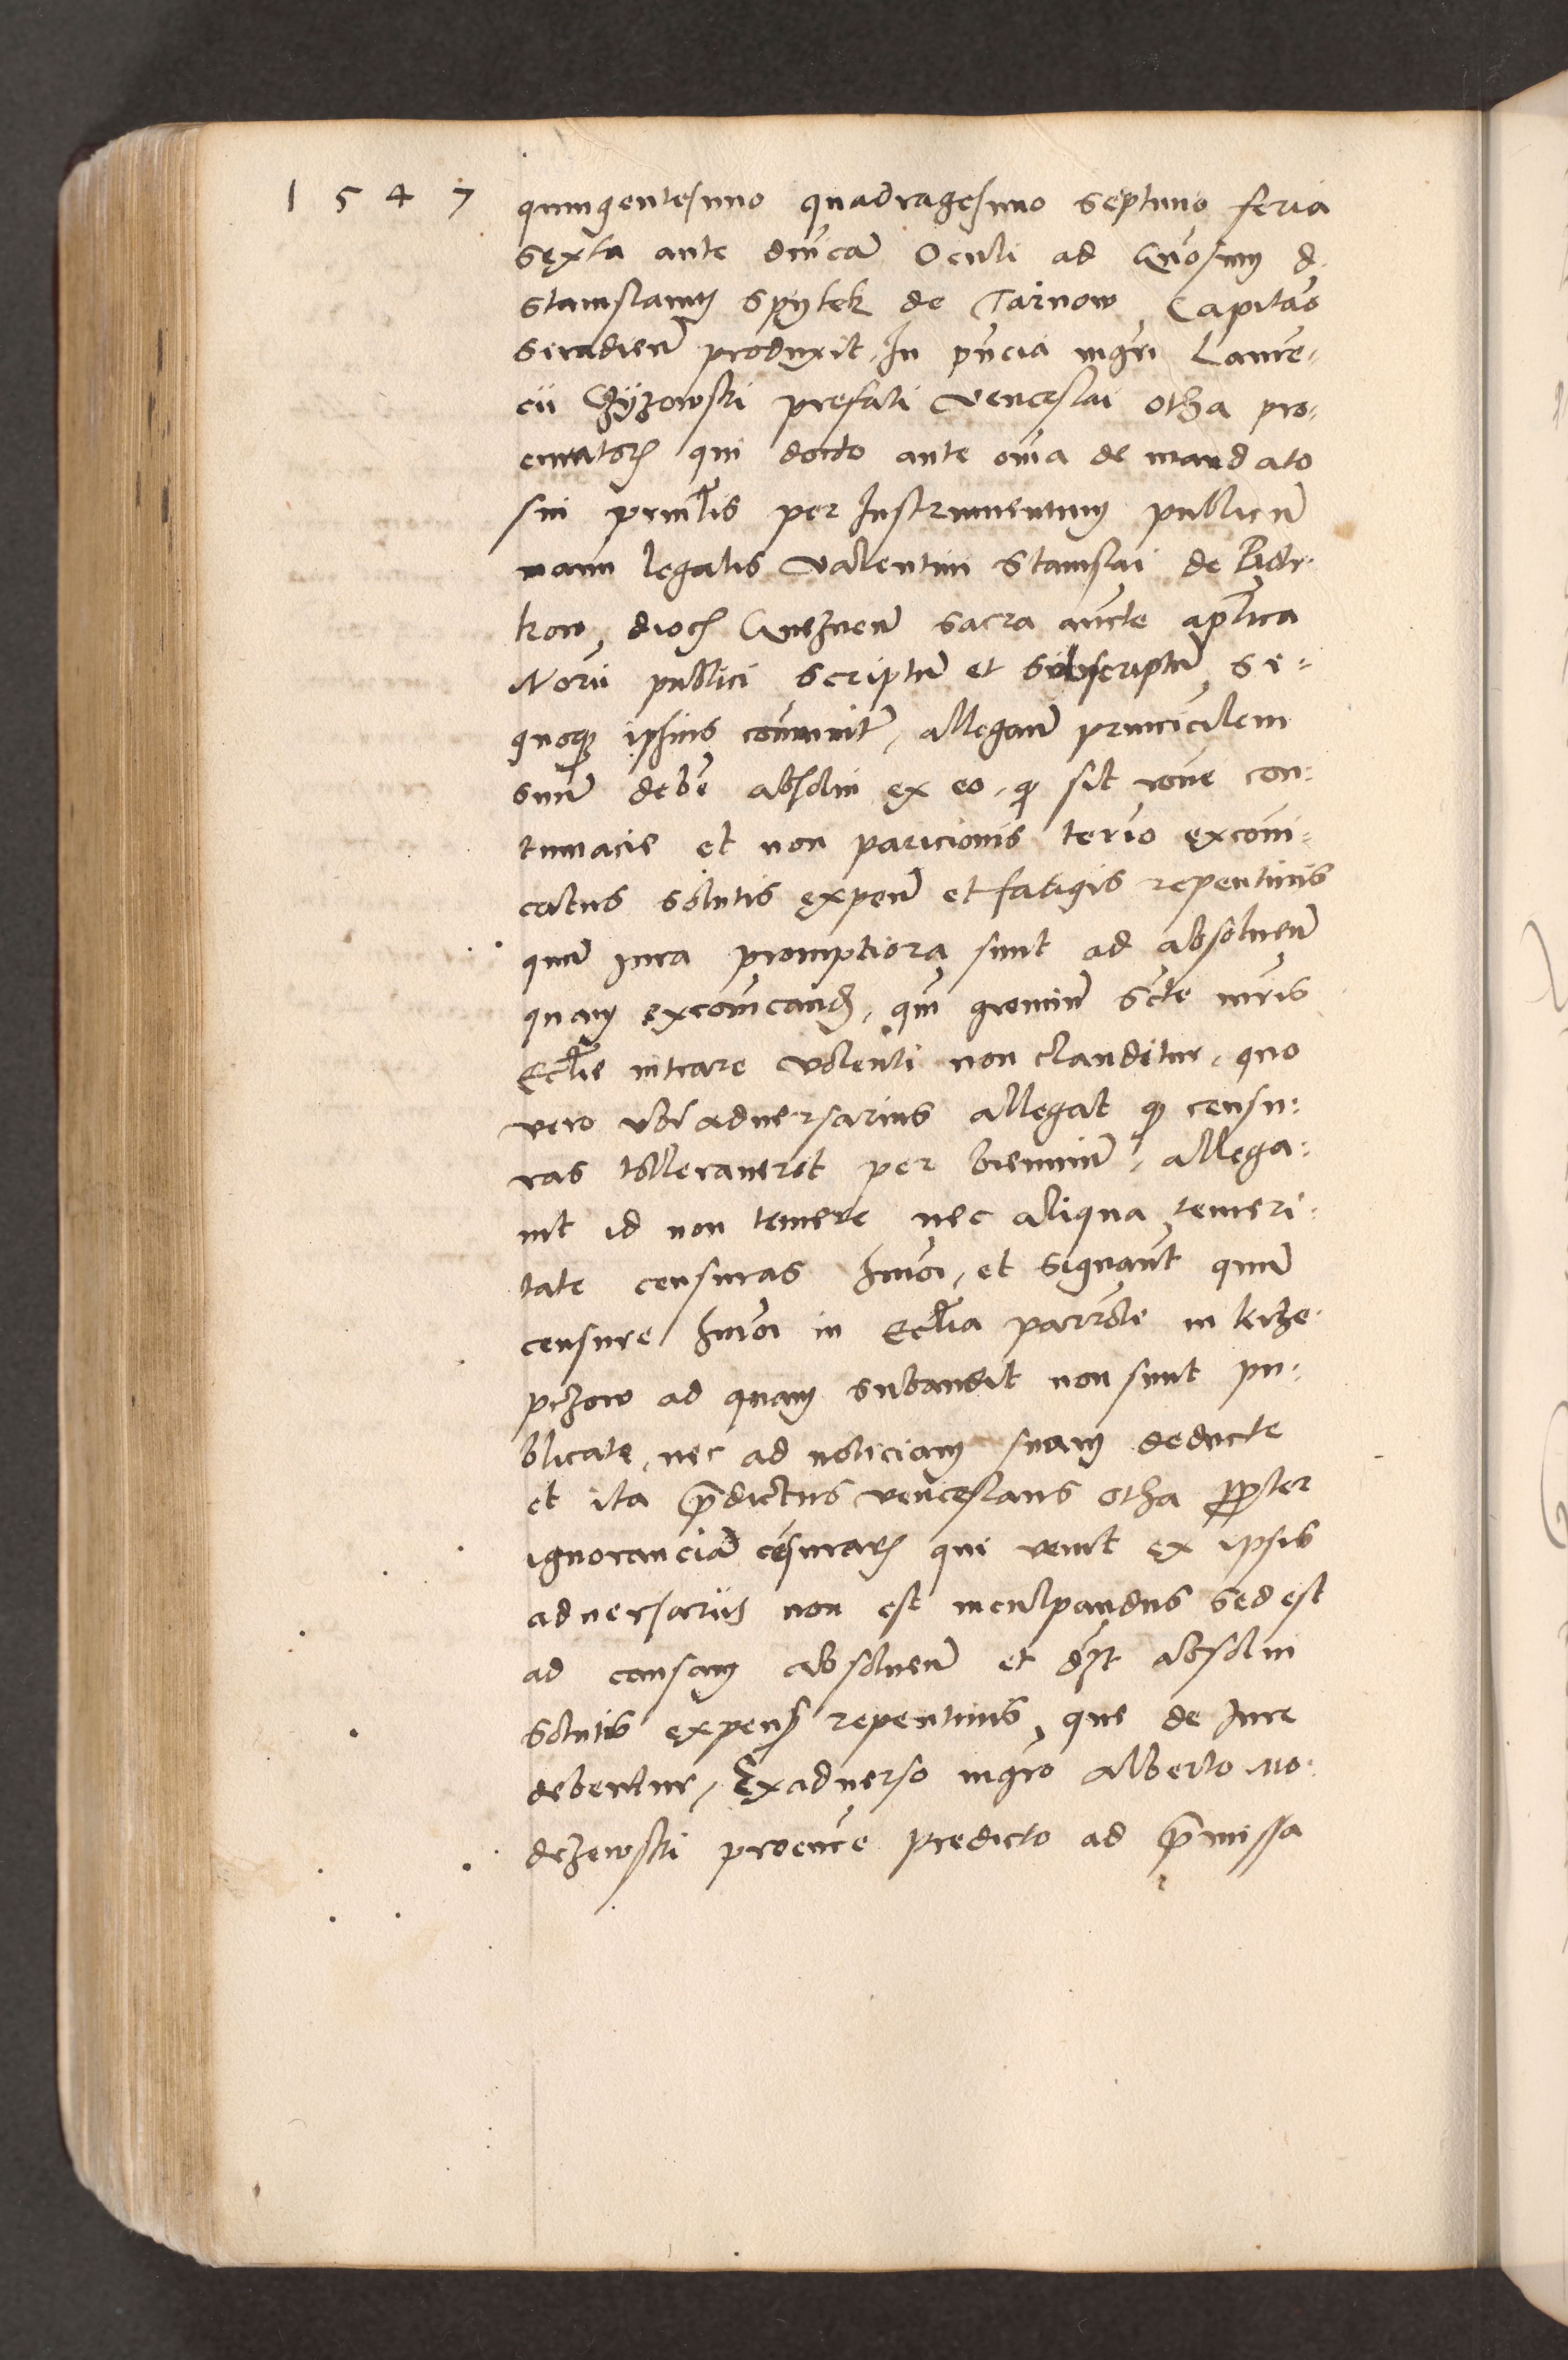 1 5 4 7
quingentesimo quadragesimo septimo feria
sexta ante dnicā Oculi ad Gnosum d.
Stanislaum Spytek de Tarnow Capitāo
Siradien̄ produxit, In pn̄cia mgr̄i Lauren-
cii Czyzowski prefati Venceslai Otha pro-
curatoris qui docto ante oīa de mandato
sui prinēlis per Instrumentum publicū
manu legalis Valentini Stanislai de Piotr-
kow, dioc. Gneznen̄ sacra aucte aplica
Norii publici scriptū et subscriptū, si-
gnoque ipsius com̄unitū, allegavit principalem
suum debere absolui ex eo, quod sit rōne con-
tumacie et non paricionis tercio excom̄i-
catus solutis expen̄ et fatigis repentinis
quia iura promptiora sunt ad absoluen̄
quam excom̄icand, quia gremiū scte mr̄is
Ecclie intrare volenti non clauditur, quo
vero ubi adversarius allegat quod censu-
ras tolleraverit per bienniū, allega-
uit id non temere nec aliqua temeri-
tate censuras hmōi, et signāut quia
censure hmōi in Ecclia parrōli in Krze-
pczow ad quam subaudit non sunt pu-
blicate, nec ad noticiam suam deducte
et ita p̄dictus venceslaus otha propter
ignoranciā censurarum qui venit ex ipsis
adversariis non est inculpandus sed est
ad causam absoluen̄ et debet absolui
solutis expens repentinis, que de Iure
debentur, Exadverso mgr̄o Alberto Mo-
drzewski procure predicto ad p̄missa